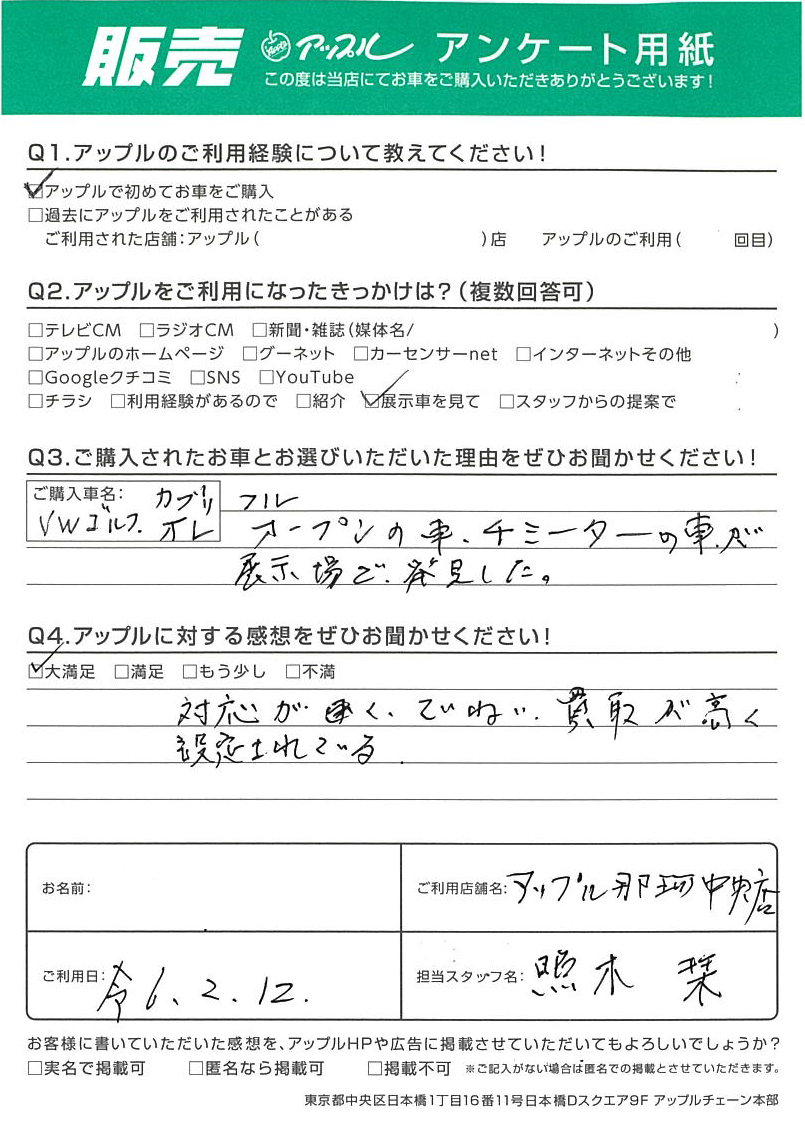 販売 アップル アンケート用紙
この度は当店にてお車をご購入いただきありがとうございます!
Q1.アップルのご利用経験について教えてください!
☑アップルで初めてお車をご購入
□過去にアップルをご利用されたことがある
ご利用された店舗:アップル( )店 アップルのご利用( 回目)
Q2.アップルをご利用になったきっかけは?(複数回答可)
□テレビCM □ラジオCM □新聞・雑誌(媒体名/ )
□アップルのホームページ □グーネット □カーセンサーnet □インターネットその他
□Googleクチコミ □SNS □YouTube
□チラシ □利用経験があるので □紹介 ☑展示車を見て □スタッフからの提案で
Q3.ご購入されたお車とお選びいただいた理由をぜひお聞かせください!
ご購入車名: カブリ フル
VWゴルフ オレ オープンの車、チミーターの車が
展示場で、発見した。
Q4.アップルに対する感想をぜひお聞かせください!
☑大満足 □満足 □もう少し □不満
対応が速く、ていねい、買取が高く
設定されている.
お名前: ご利用店舗名:アップル那珂中央店
ご利用日:令6、2、12. 担当スタッフ名:照木 栞
お客様に書いていただいた感想を、アップルHPや広告に掲載させていただいてもよろしいでしょうか?
□実名で掲載可 □匿名なら掲載可 □掲載不可 ※ご記入がない場合は匿名での掲載とさせていただきます。
東京都中央区日本橋1丁目16番11号日本橋Dスクエア9F アップルチェーン本部